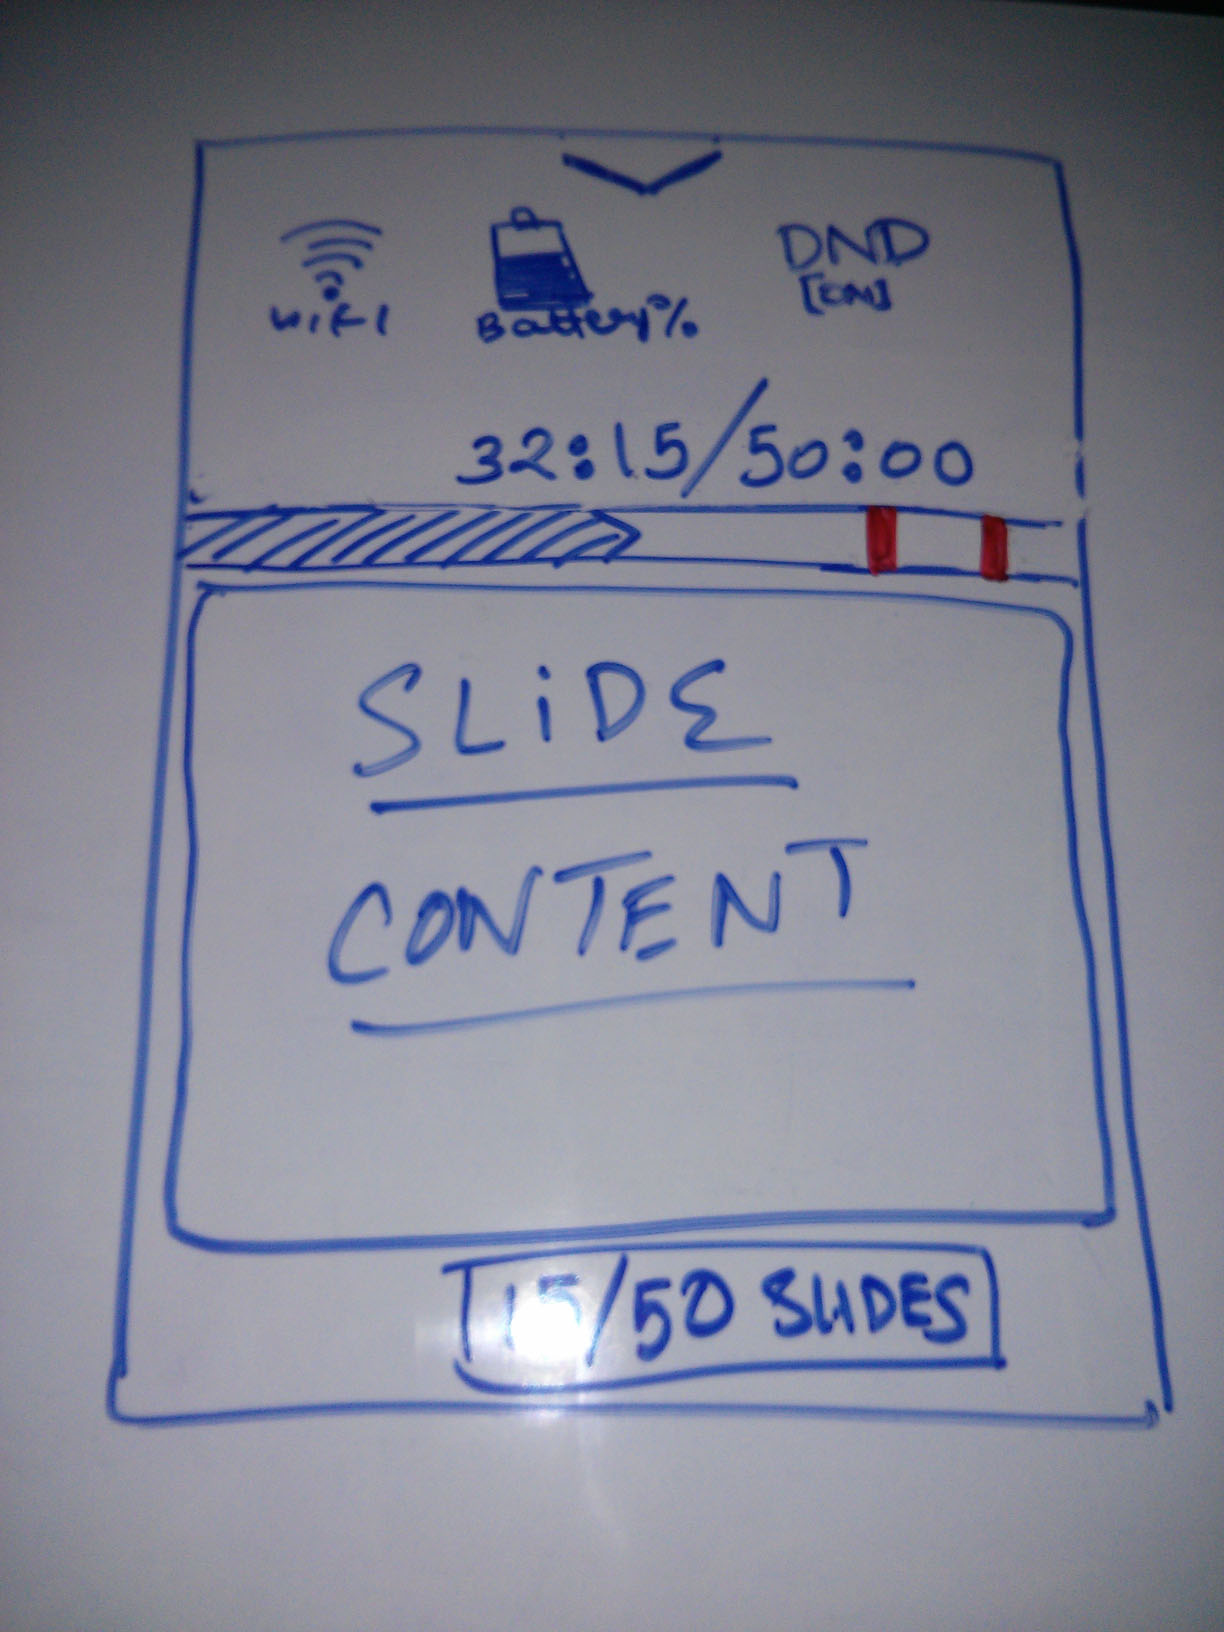 WiFi Battery% DND
[ON]
32:15/50:00
SLiDE
CONTENT
15/50 SLIDES